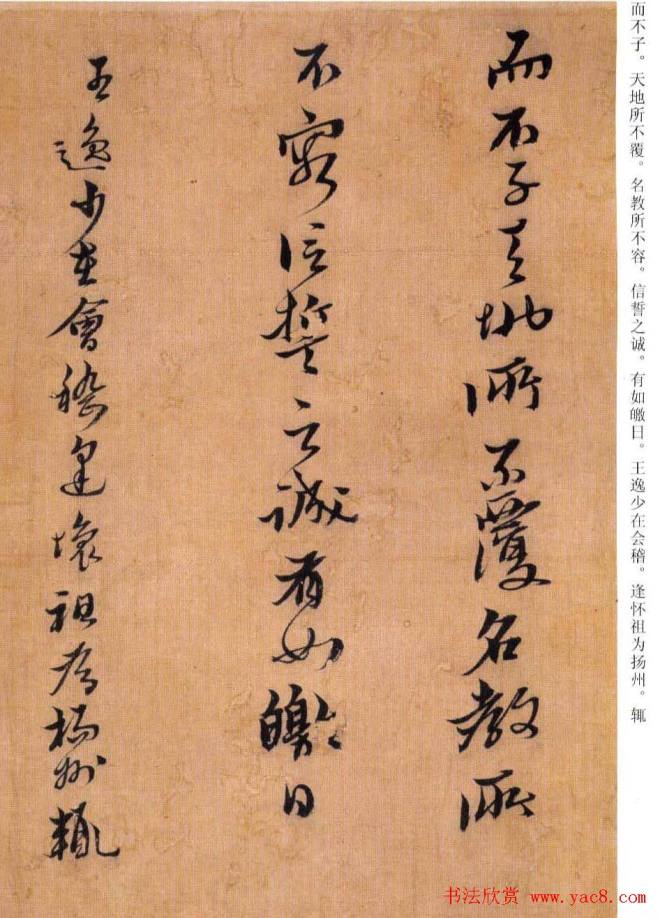 而不子。天地所不覆。名教所不容。信誓之诚。有如皦日。王逸少在会稽。逢怀祖为扬州。辄
而不子天地所不覆名教所
不容信誓之誠有如皦日
王逸少在會稽逢懷祖為揚州輒
书法欣赏 www.yac8.com